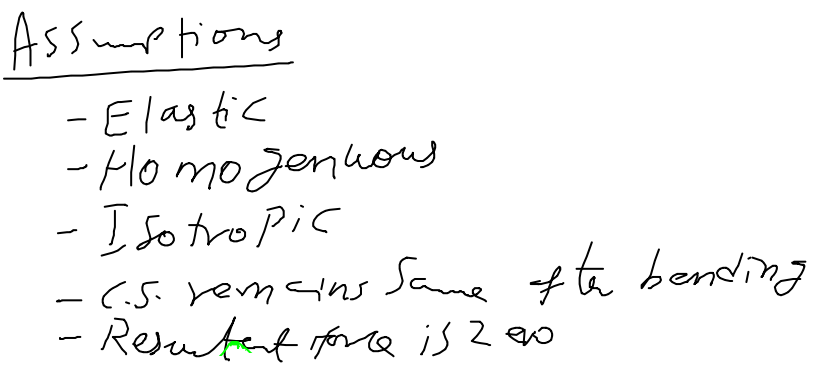 Assumptions
- Elastic
- Homogenuous
- Isotropic
- C.S. remains same after bending
- Resultant force is zero